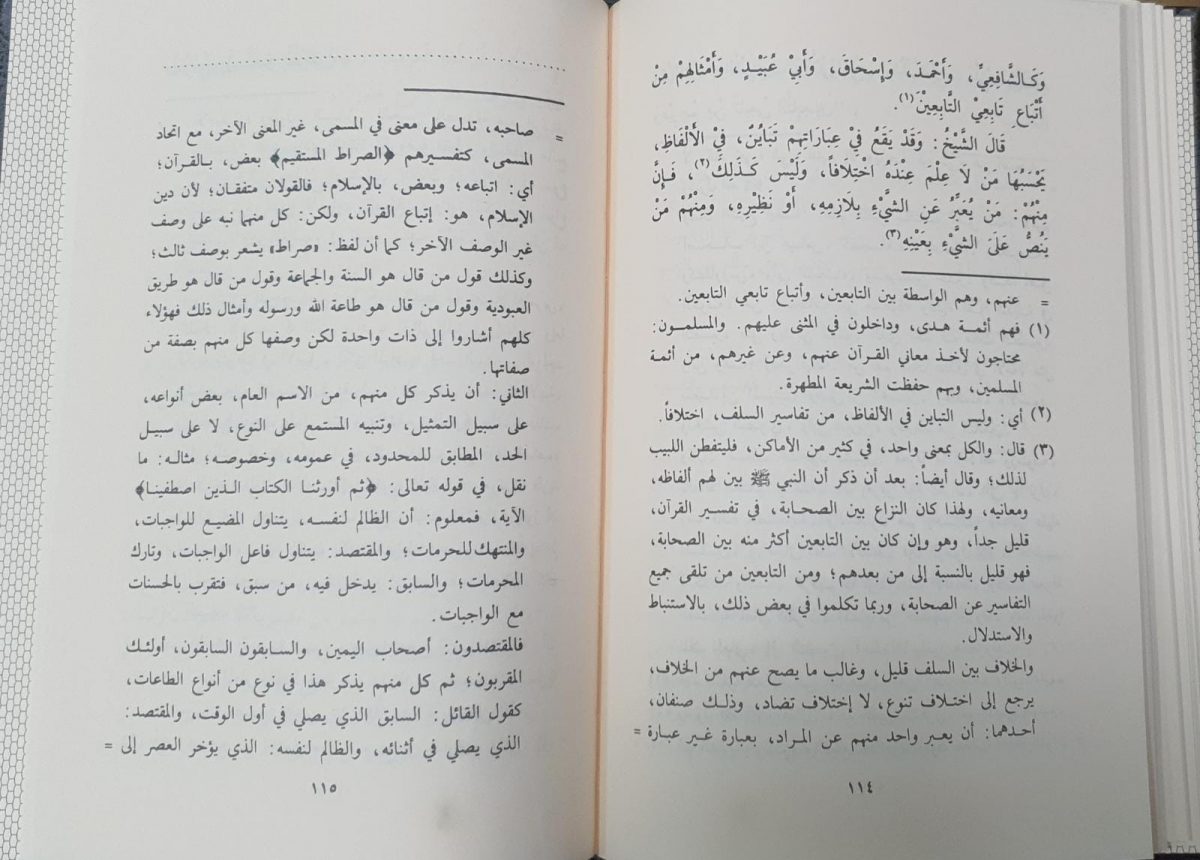 وَكَالشَّافِعِيِّ، وَأَحْمَدَ، وَإِسْحَاقَ، وَأَبِيْ عُبَيْدٍ، وَأَمْثَالِهِمْ مِنْ
أَتْبَاعِ تَابِعِيْ التَّابِعِيْنَ(١).
قَالَ الشَّيْخُ: وَقَدْ يَقَعُ فِيْ عِبَارَاتِهِمْ تَبَايُنٌ، فِيْ الأَلْفَاظِ،
يَحْسَبُهَا مَنْ لَا عِلْمَ عِنْدَهُ اخْتِلَافاً، وَلَيْسَ كَذَلِكَ(٢)، فَإِنَّ
مِنْهُمْ: مَنْ يُعَبِّرُ عَنِ الشَّيْءِ بِلَازِمِهِ، أَوْ نَظِيْرِهِ، وَمِنْهُمْ مَنْ
يَنُصُّ عَلَى الشَّيْءِ بِعَيْنِهِ(٣).
= عنهم، وهم الواسطة بين التابعين، وأتباع تابعي التابعين.
(١) فهم أئمـة هدى، وداخلون في المثنى عليهم. والمسلمـون:
محتاجون لأخذ معاني القرآن عنهم، وعن غيرهم، من أئمة
المسلمين، وبهم حفظت الشريعة المطهرة.
(٢) أي: وليس التباين في الألفاظ، من تفاسير السلف، اختلافاً.
(٣) قال: والكل بمعنى واحد، في كثير من الأماكن، فليتفطن اللبيب
لذلك؛ وقال أيضاً: بعد أن ذكر أن النبي ﷺ بين لهم ألفاظه،
ومعانيه، ولهذا كان النزاع بين الصحابة، في تفسير القرآن،
قليل جداً، وهو وإن كان بين التابعين أكثر منه بين الصحابة،
فهو قليل بالنسبة إلى من بعدهم؛ ومن التابعين من تلقى جميع
التفاسير عن الصحابة، وربما تكلموا في بعض ذلك، بالاستنباط
والاستدلال.
والخلاف بين السلف قليل، وغالب ما يصح عنهم من الخلاف،
يرجع إلى اختـلاف تنوع، لا إختلاف تضاد، وذلـك صنفان،
أحدهما: أن يعبر واحد منهم عن المـراد، بعبارة غـير عبارة =
١١٤
= صاحبه، تدل على معنى في المسمى، غير المعنى الآخر، مع اتحاد
المسمى، كتفسيرهم ﴿الصراط المستقيم﴾ بعض، بـالقرآن؛
أي: اتباعه؛ وبعض، بالإسلام؛ فالقولان متفقـان؛ لأن دين
الإسلام، هو: إتباع القرآن، ولكن: كل منهما نبه على وصف
غير الوصف الآخر؛ كما أن لفظ: «صراط» يشعر بوصف ثالث؛
وكذلك قول من قال هو السنة والجماعة وقول من قال هو طريق
العبودية وقول من قال هو طاعة الله ورسوله وأمثال ذلك فهؤلاء
كلهم أشاروا إلى ذات واحدة لكن وصفها كل منهم بصفة من
صفاتها.
الثاني: أن يذكر كل منهم، من الاسم العام، بعض أنواعه،
على سبيل التمثيل، وتنبيه المستمع على النوع، لا على سبيـل
الحد، المطابق للمحدود، في عمومه، وخصوصه؛ مثالـه: ما
نقل، في قوله تعالى: ﴿ثم أورثنـا الكتاب الـذين اصطفينـا﴾
الآية، فمعلوم: أن الظالم لنفسـه، يتناول المضيع للواجبات،
والمنتهك للحرمات؛ والمقتصد: يتناول فاعل الواجبات، وتارك
المحرمات؛ والسابق: يدخل فيه، من سبق، فتقرب بالحسنات
مع الواجبات.
فالمقتصدون: أصحاب اليمين، والسابقون السابقون، أولئـك
المقربون؛ ثم كل منهم يذكر هذا في نوع من أنواع الطاعات،
كقول القائل: السابق الذي يصلي في أول الوقت، والمقتصد:
الذي يصلي في أثنائه، والظالم لنفسه: الذي يؤخر العصر إلى =
١١٥